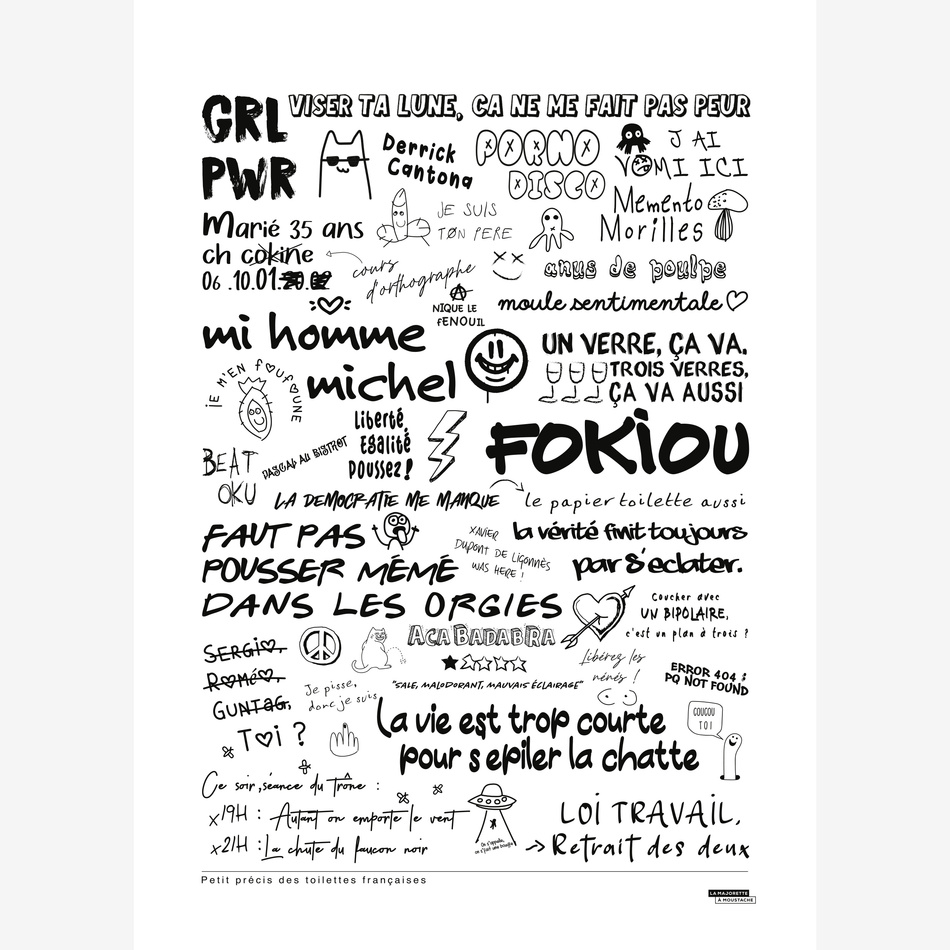 GRL
PWR
VISER TA LUNE, ÇA NE ME FAIT PAS PEUR
Derrick
Cantona
PORNO
DISCO
J'AI
VOMI ICI
Memento
Morilles
Marié 35 ans
ch cokine
06 .10.01.
JE SUIS
TØN PERE
cours
d'orthographe
anus de poulpe
NIQUE LE
fENOUIL
moule sentimentale
mi homme
michel
UN VERRE, ÇA VA.
TROIS VERRES,
ÇA VA AUSSI
JE M'EN FOUFOUNE
Liberté,
Egalité
Poussez!
FOKIOU
BEAT
OKU
PASCAL AU BISTROT
LA DEMOCRATIE ME MANQUE
le papier toilette aussi
FAUT PAS
POUSSER MÉMÉ
DANS LES ORGIES
XAVIER
DUPONT DE LIGONNÈS
WAS HERE !
la vérité finit toujours
par s'éclater.
Coucher avec
UN BIPOLAIRE,
c'est un plan à trois ?
ACABADABRA
SERGIO,
ROMÉO,
GUNTAG,
TOi ?
"SALE, MALODORANT, MAUVAIS ÉCLAIRAGE"
Libérez les
nénés !
ERROR 404 :
PQ NOT FOUND
Je pisse,
donc je suis
La vie est trop courte
pour s epiler la chatte
COUCOU
TOI
Ce soir, séance du trône :
x19H : Autant on emporte le vent
x21H : La chute du faucon noir
LOI TRAVAIL,
Retrait des deux
Petit précis des toilettes françaises
LA MAJORETTE
À MOUSTACHE